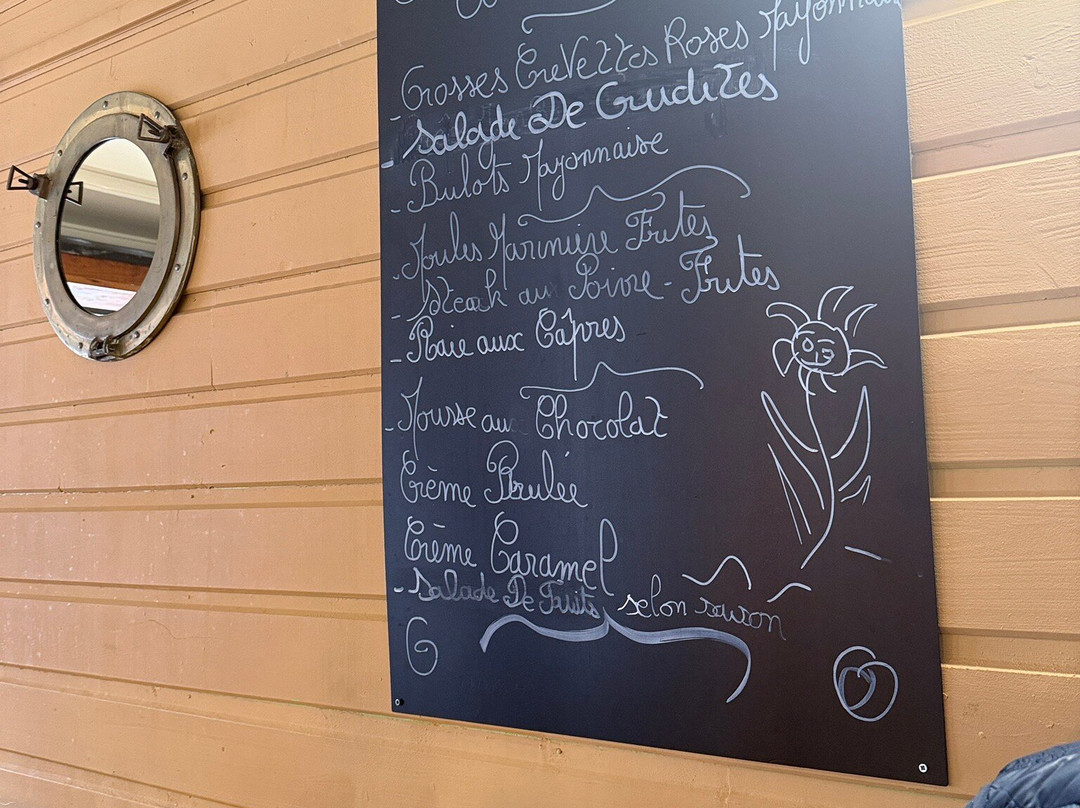 - Grosses Crevettes Roses Mayonnaise
- Salade De Crudités
- Bulots Mayonnaise
- Moules Marinière Frites
- Steak au Poivre - Frites
- Raie aux Câpres
- Mousse au Chocolat
Crème Brulée
Crème Caramel
- Salade De Fruits selon saison